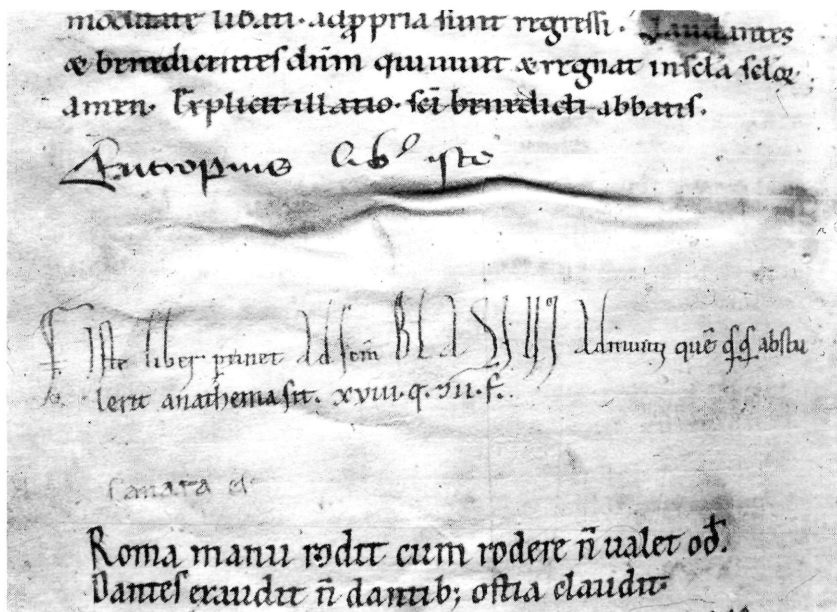 moditate libati. adꝓpria sunt regressi. Laudantes
& benedicentes dñm qui uiuit & regnat in scła scłoꝝ
amen. Explicit illatio. scī benedicti abbatis.
Eutropius lib' iste
Iste liber ꝑtinet ad scm BLASIUM quē abstu
lerit anathema sit. xviii. q. vii. f.
sanata ē
Roma manu rodit cum rodere n̄ ualet od.
Dantes exaudit n̄ dantib; ostia claudit